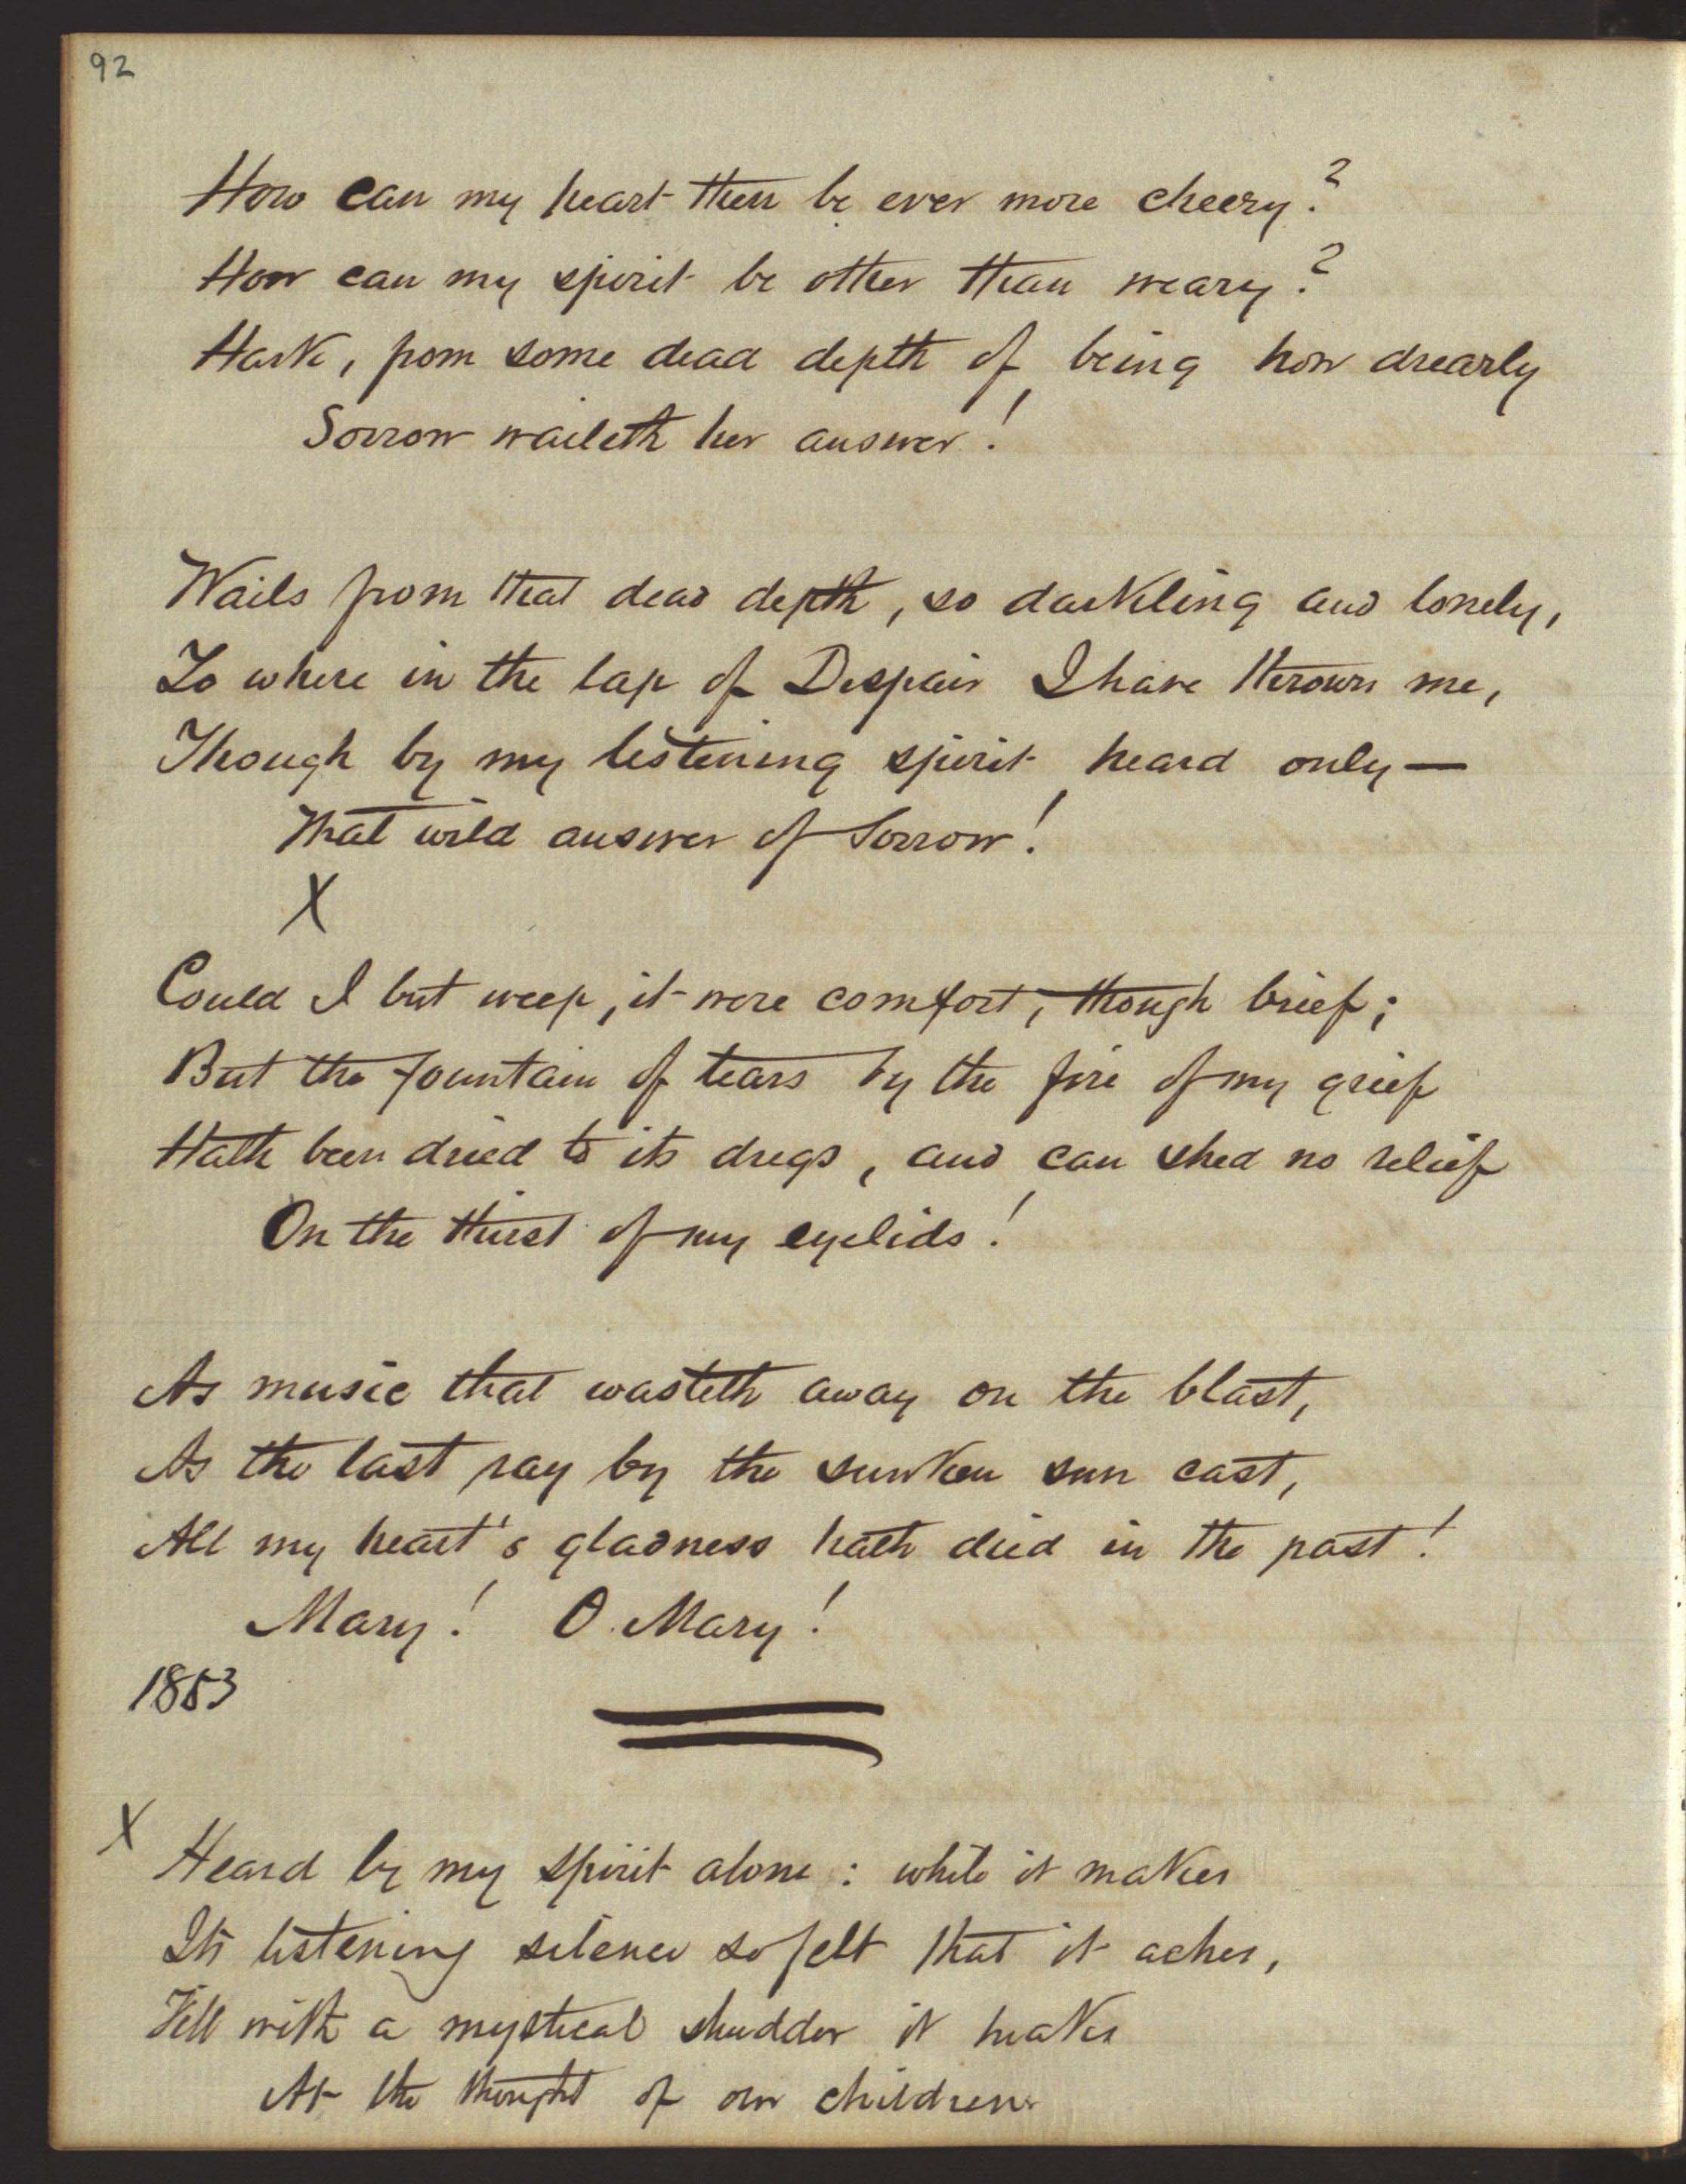 92
How can my heart then be ever more cheery?
How can my spirit be other than weary?
Hark, from some dead depth of being how drearly
Sorrow waileth her answer!
Wails from that dead depth, so darkling and lonely,
To where in the lap of Despair I have thrown me,
Though by my listening spirit heard only—
That wild answer of Sorrow!
X
Could I but weep, it were comfort, though brief;
But the fountain of tears by the fire of my grief
Hath been dried to its dregs, and can shed no relief
On the thirst of my eyelids!
As music that wasteth away on the blast,
As the last ray by the sunken sun cast,
All my heart's gladness hath died in the past!
Mary! O Mary!
1883
X Heard by my spirit alone: while it makes
Its listening silence so felt that it aches,
Till with a mystical shudder it
At the thought of our children